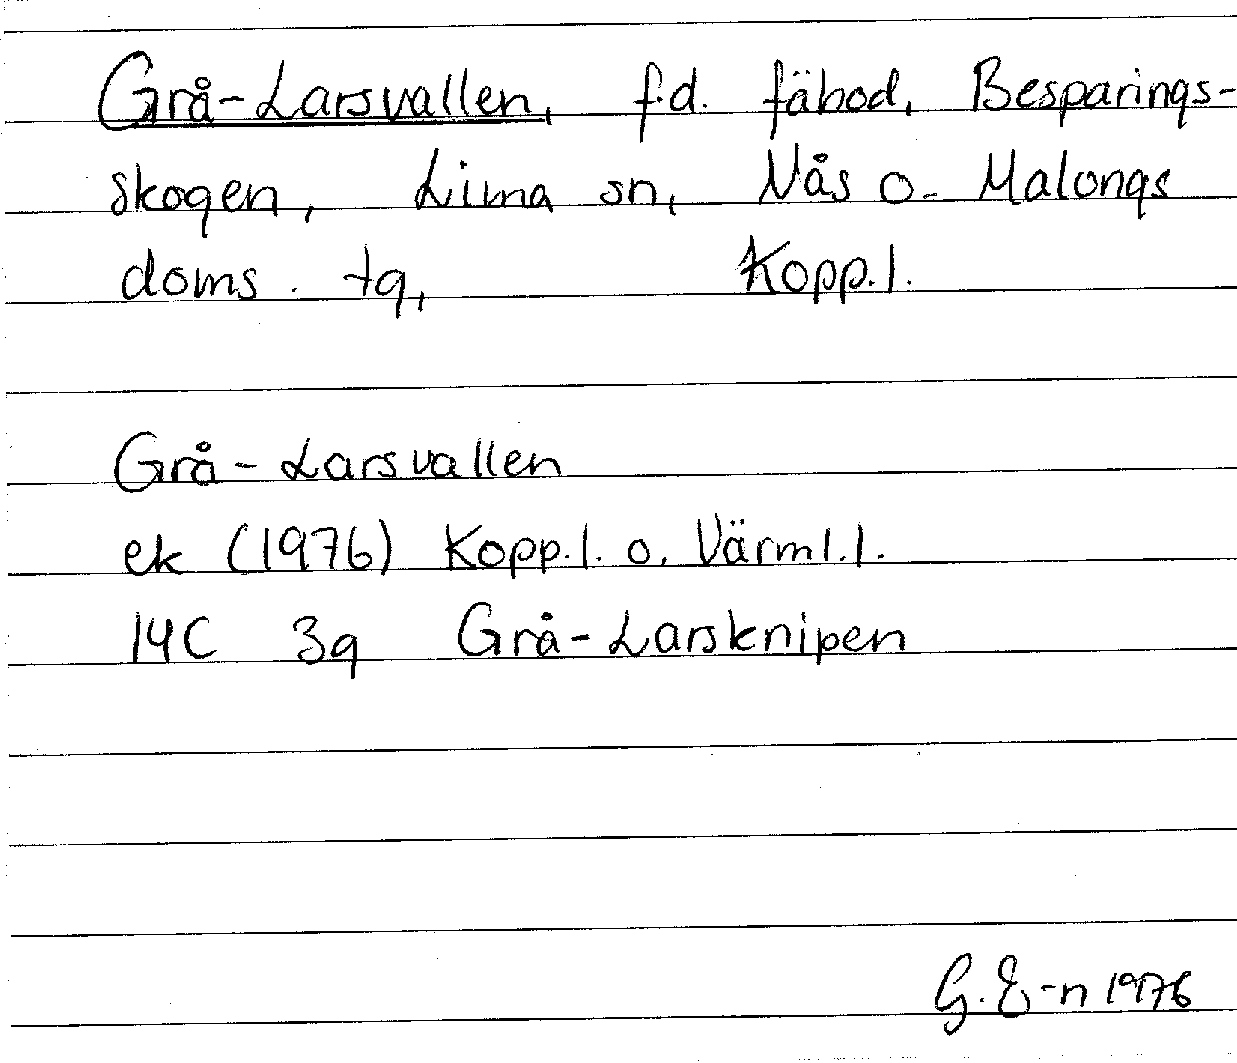 Grå-Larsvallen, f.d. fäbod, Besparings-
skogen, Lima sn, Nås o. Malungs
doms. tg, Kopp.l.
Grå-Larsvallen
ek (1976) Kopp.l. o. Värml.l.
14C 3g Grå-Larsknipen
G. E-n 1976